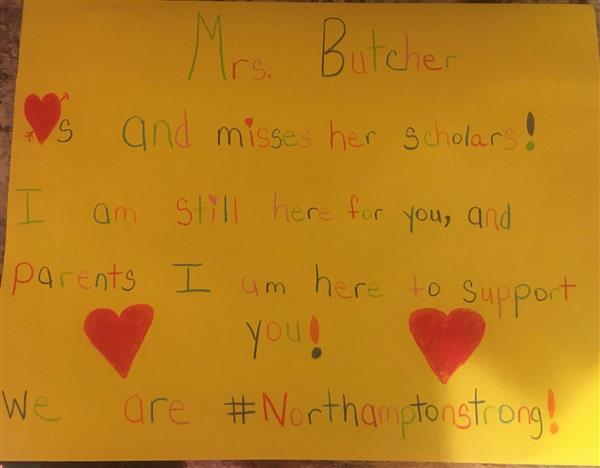 Mrs. Butcher
s and misses her scholars!
I am still here for you, and
parents I am here to support
you!
We are #Northamptonstrong!